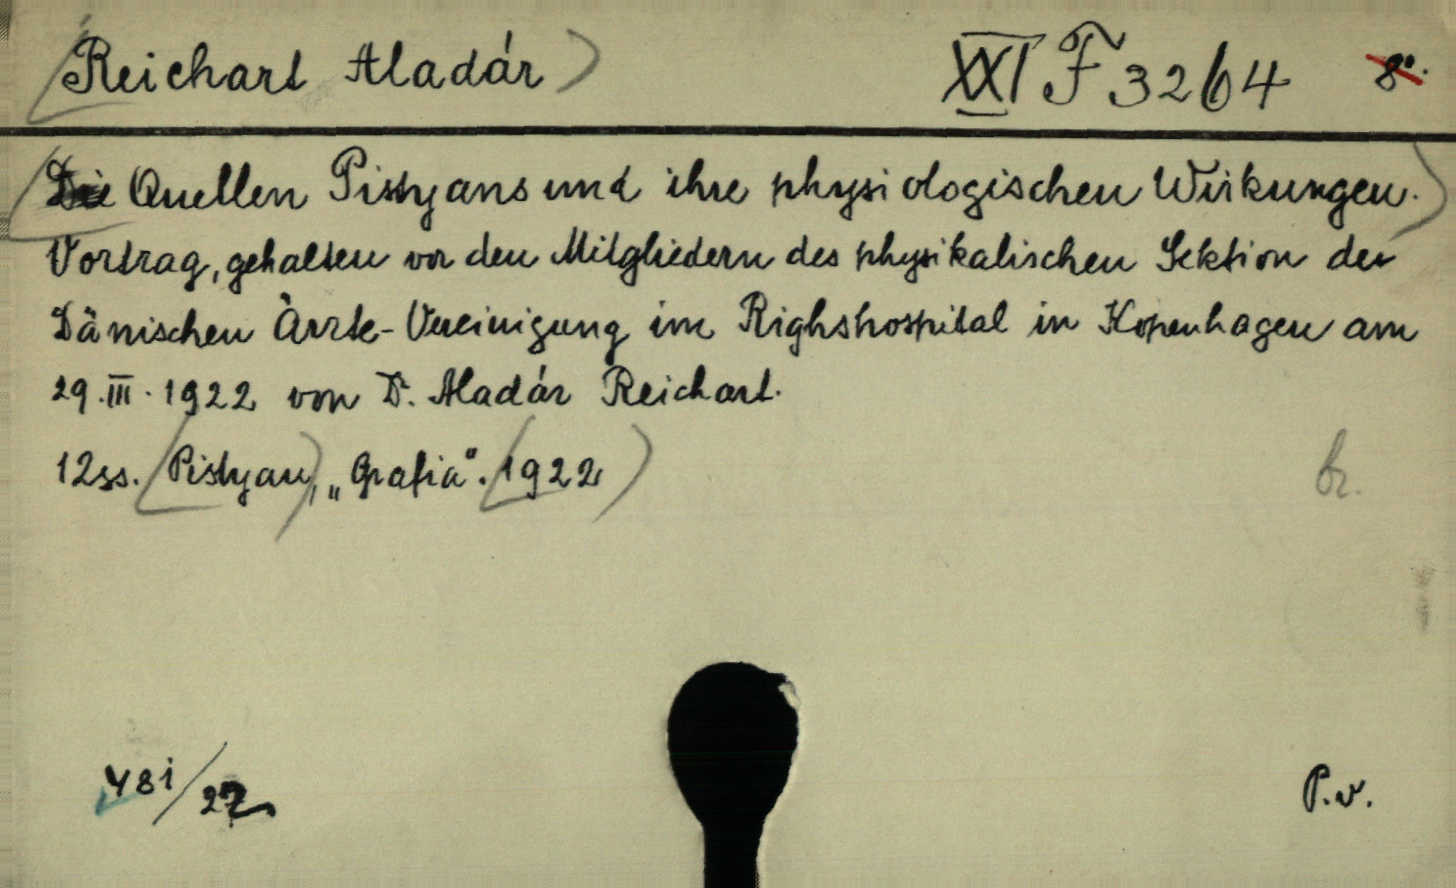 Reichart Aladár XXI F 3264 8°.
Die Quellen Pistyans und ihre physiologischen Wirkungen.
Vortrag, gehalten vor den Mitgliedern des physikalischen Sektion der
Dänischen Ärzte-Vereinigung im Righshospital in Kopenhagen am
29.III.1922 von Dr. Aladár Reichart.
12ss. Pistyan, „Grafia". 1922
br.
481/27
P.v.